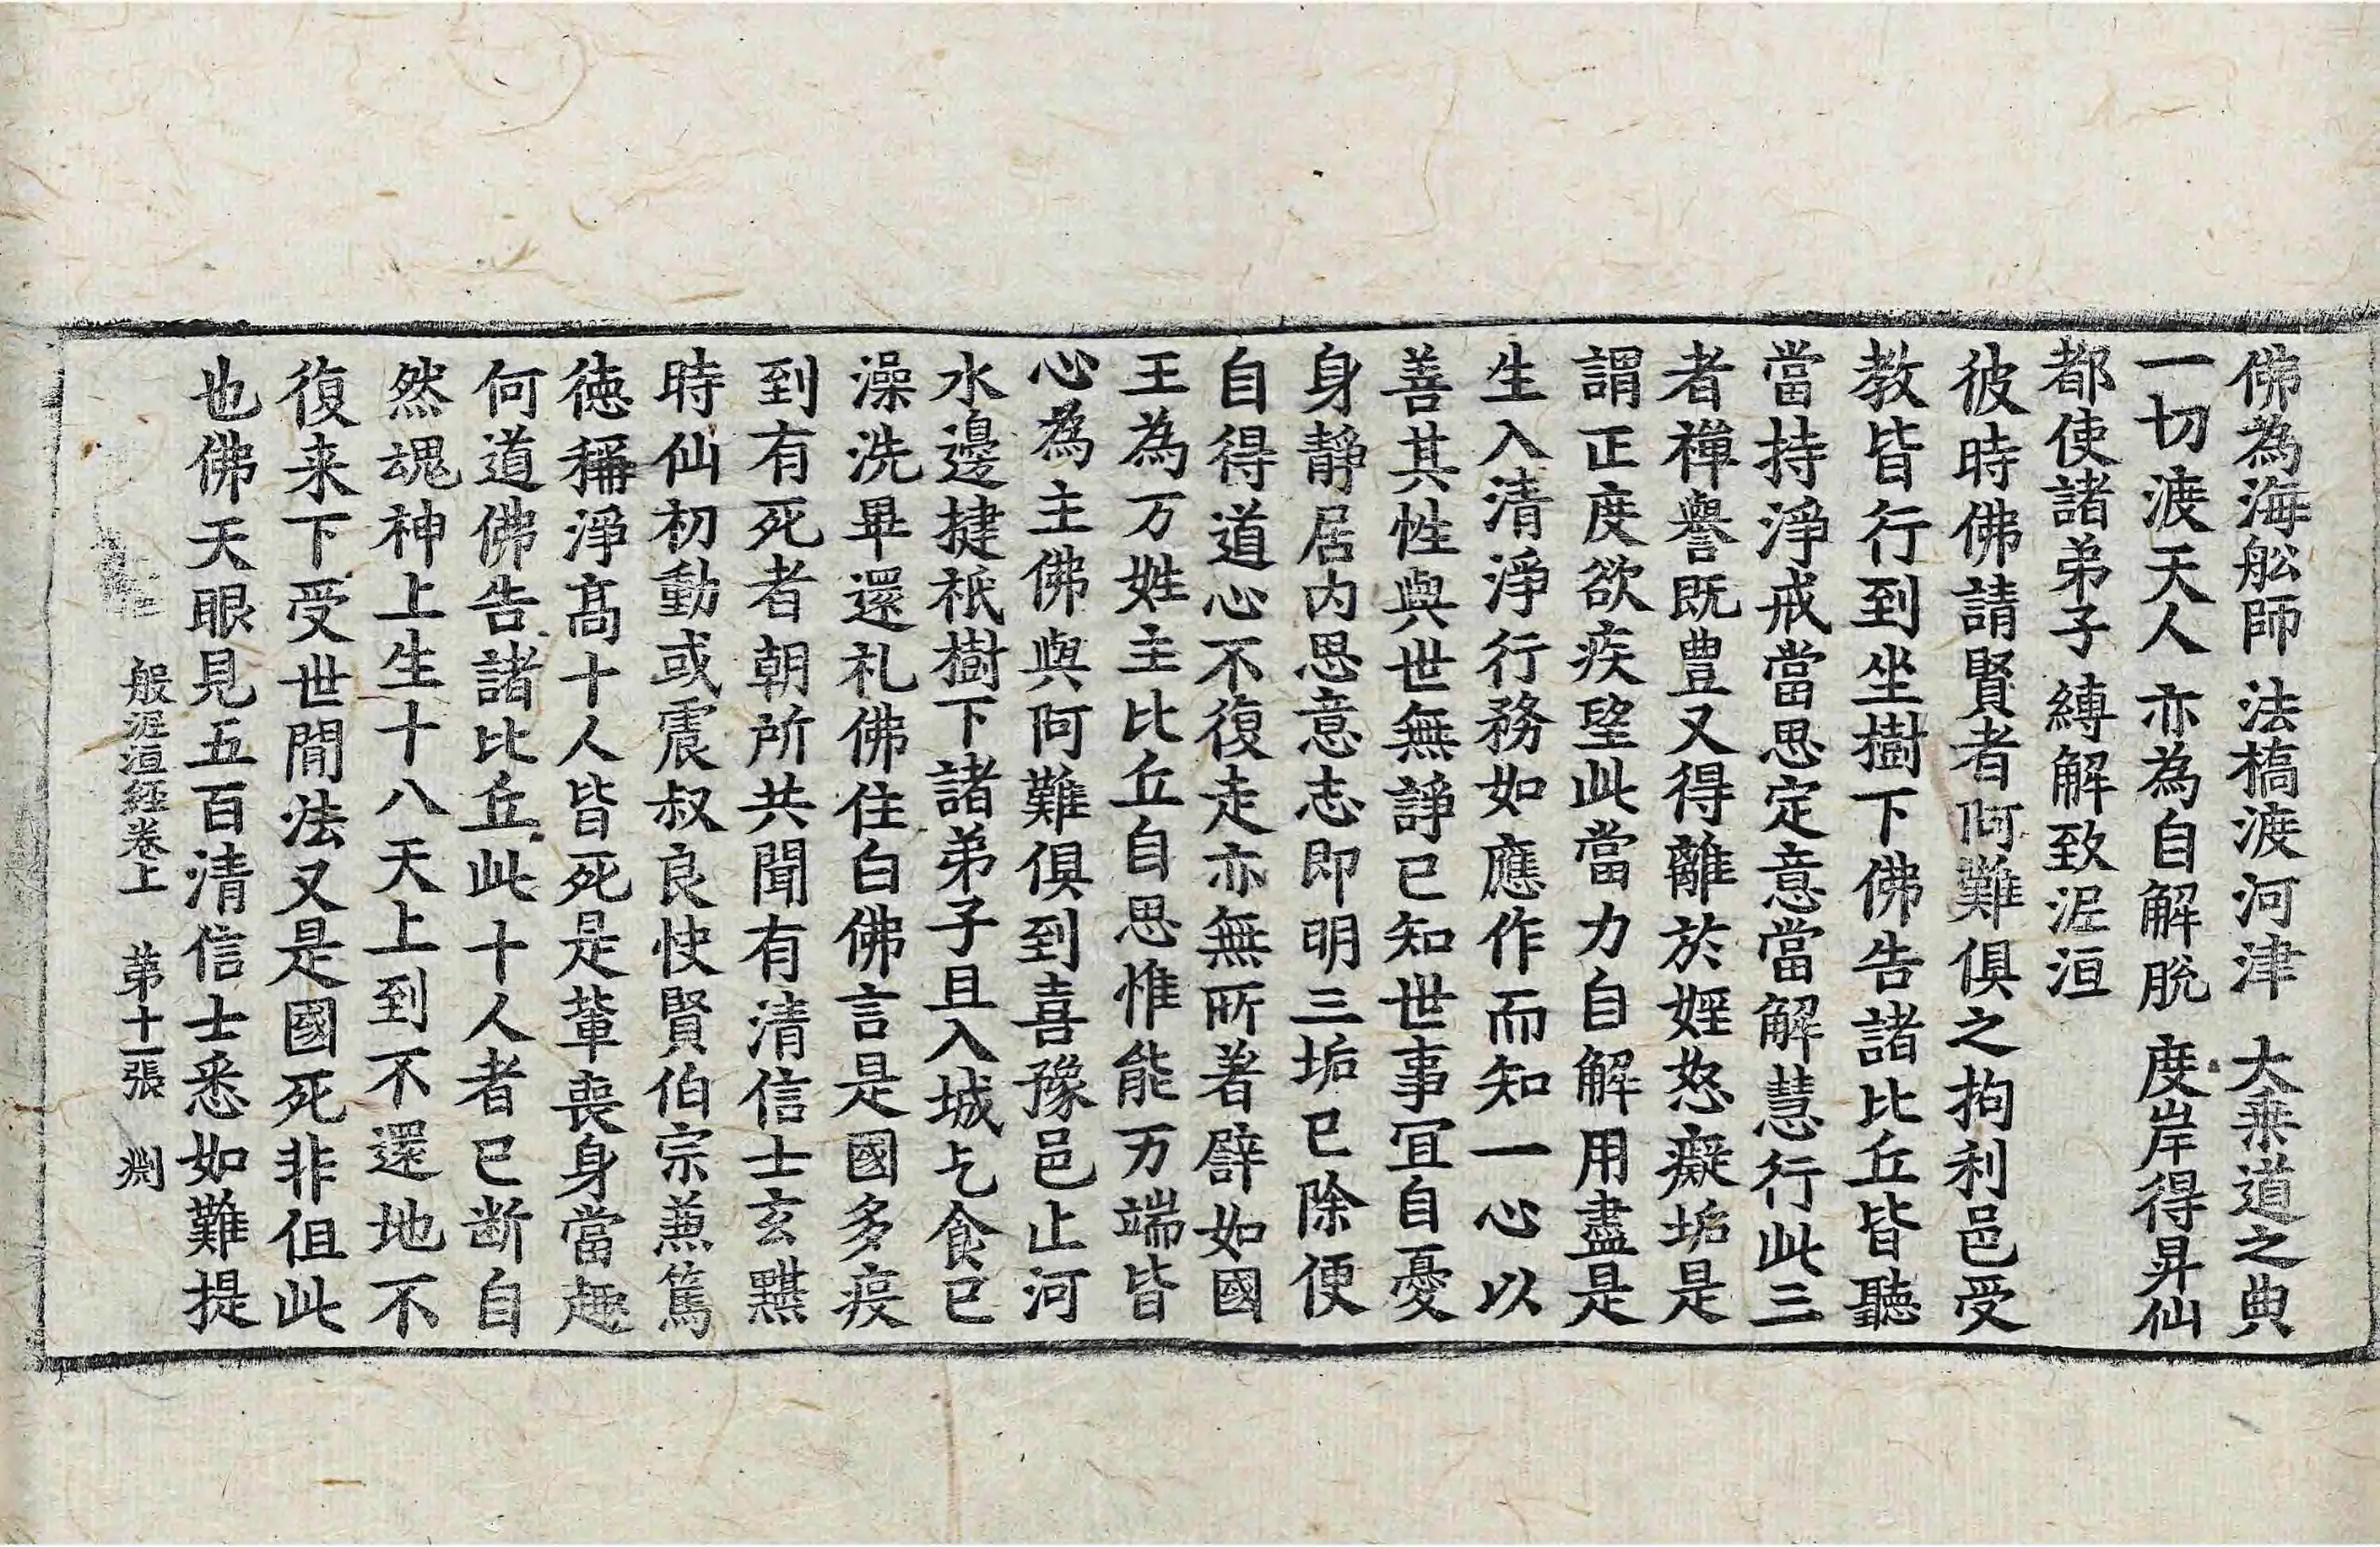 佛為海舩師 法橋渡河津 大乗道之典
一切渡天人 亦為自解脫 度岸得昇仙
都使諸弟子 縛解致泥洹
彼時佛請賢者阿難俱之拘利邑受
教皆行到坐樹下佛告諸比丘皆聽
當持淨戒當思定意當解慧行此三
者禪譽旣豊又得離於婬怒癡垢是
謂正度欲疾望此當力自解用盡是
生入清淨行務如應作而知一心以
善其性與世無諍已知世事冝自憂
身靜居内思意志即明三垢已除便
自得道心不復走亦無所著譬如國
王為万姓主比丘自思惟能万端皆
心為主佛與阿難俱到喜豫邑止河
水邊揵祇樹下諸弟子且入城乞食已
澡洗畢還礼佛住白佛言是國多疫
到有死者朝所共聞有清信士玄黮
時仙初動或震叔良快賢伯宗兼篤
徳稱淨髙十人皆死是輩喪身當趣
何道佛告諸比丘此十人者已断自
然魂神上生十八天上到不還地不
復来下受世閒法又是國死非但此
也佛天眼見五百清信士悉如難提
般泥洹經卷上 苐十一張 渕